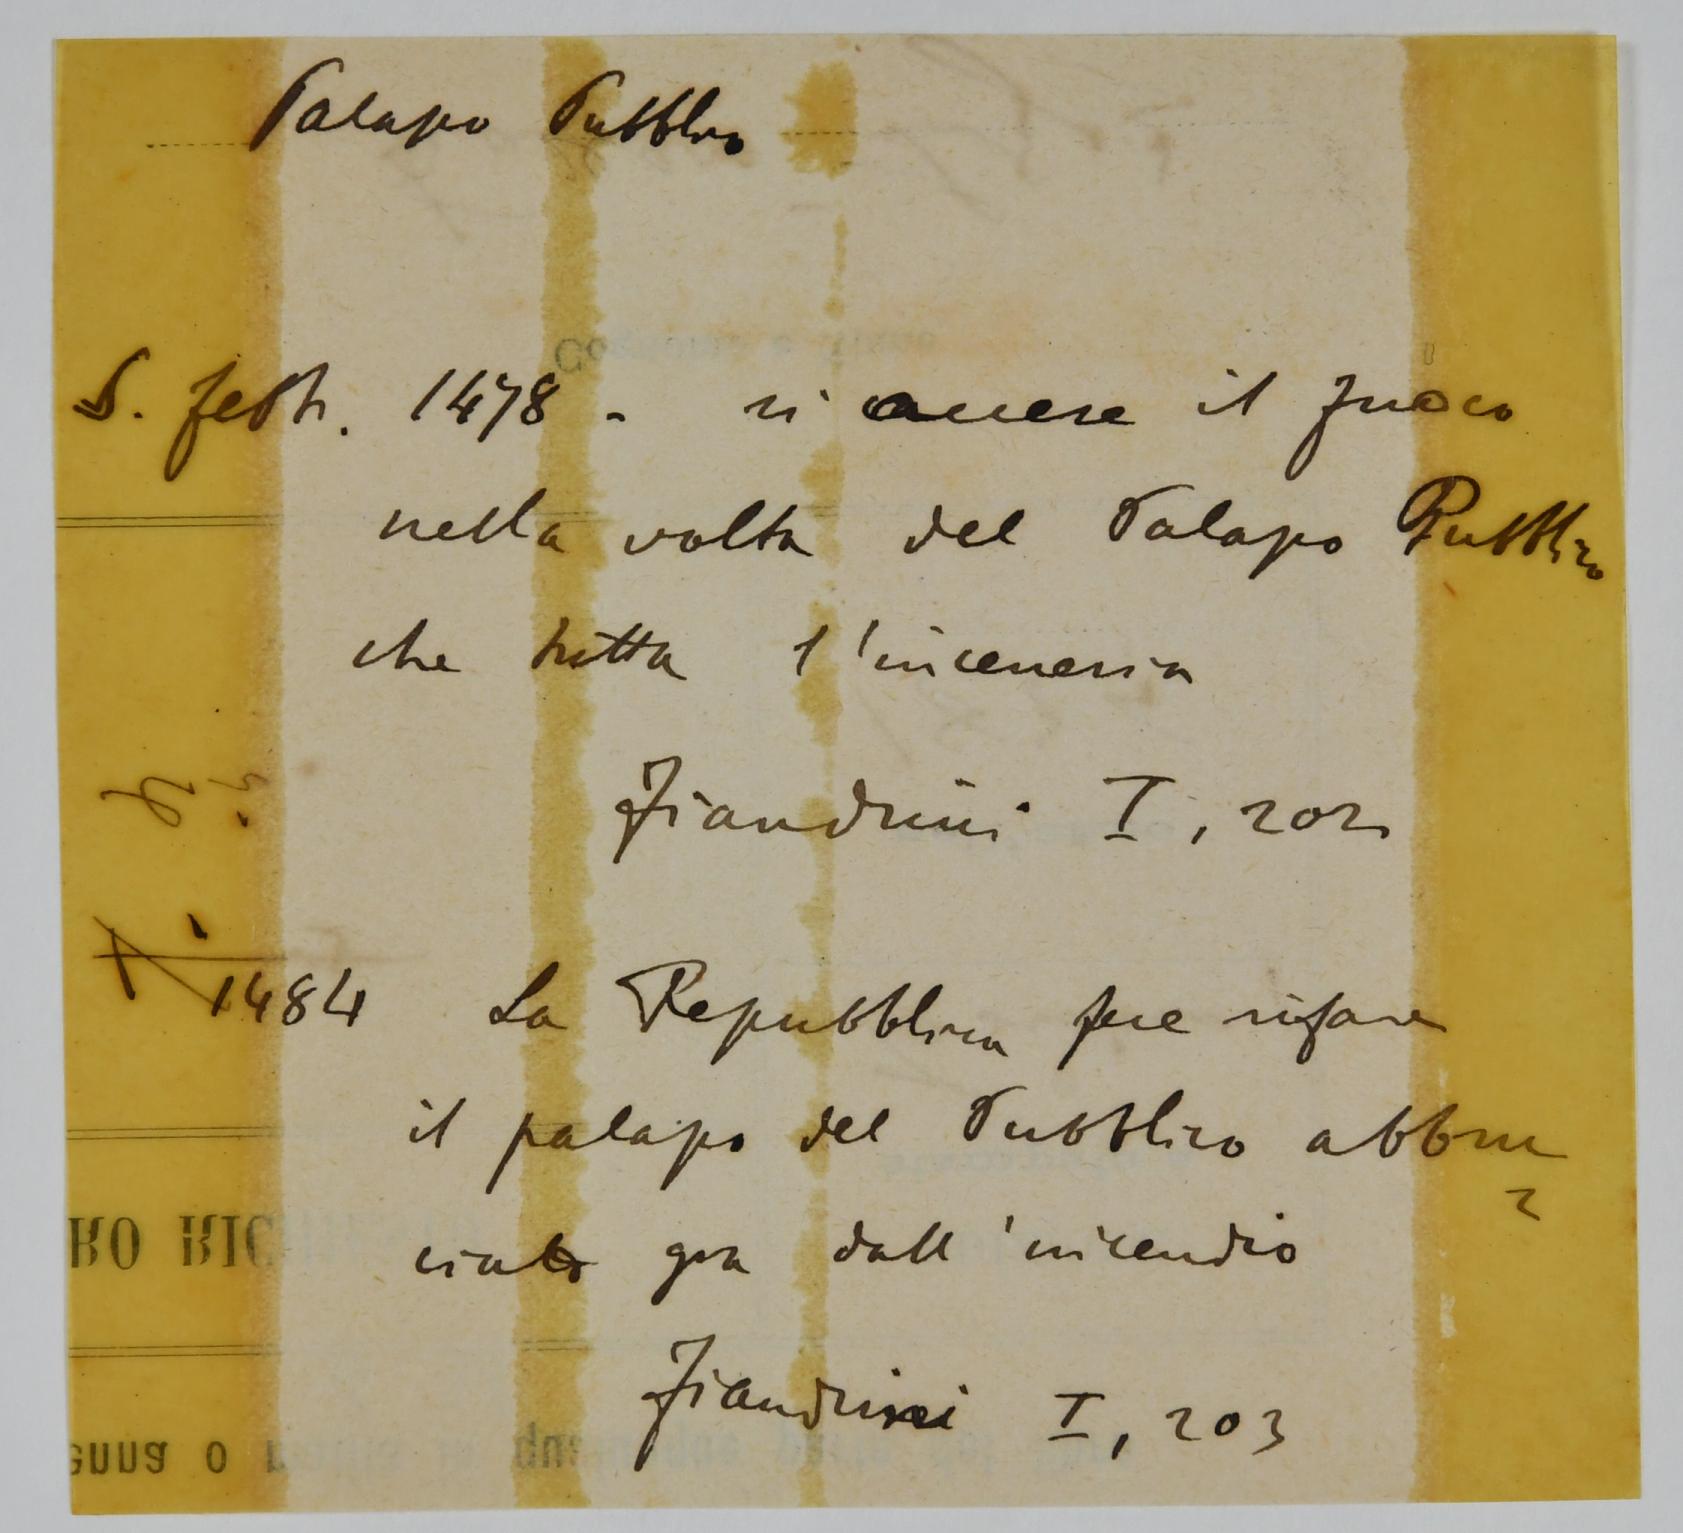 Palazzo Pubblico
5. febb. 1478 - si accese il fuoco
nella volta del Palazzo Pubblico
che tutta l'inceneriva
Fiandrini I, 202
1484 La Repubblica fece rifare
il palazzo del Pubblico abbru
ciato già dall'incendio
Fiandrini I, 203
RO RIC
enna o